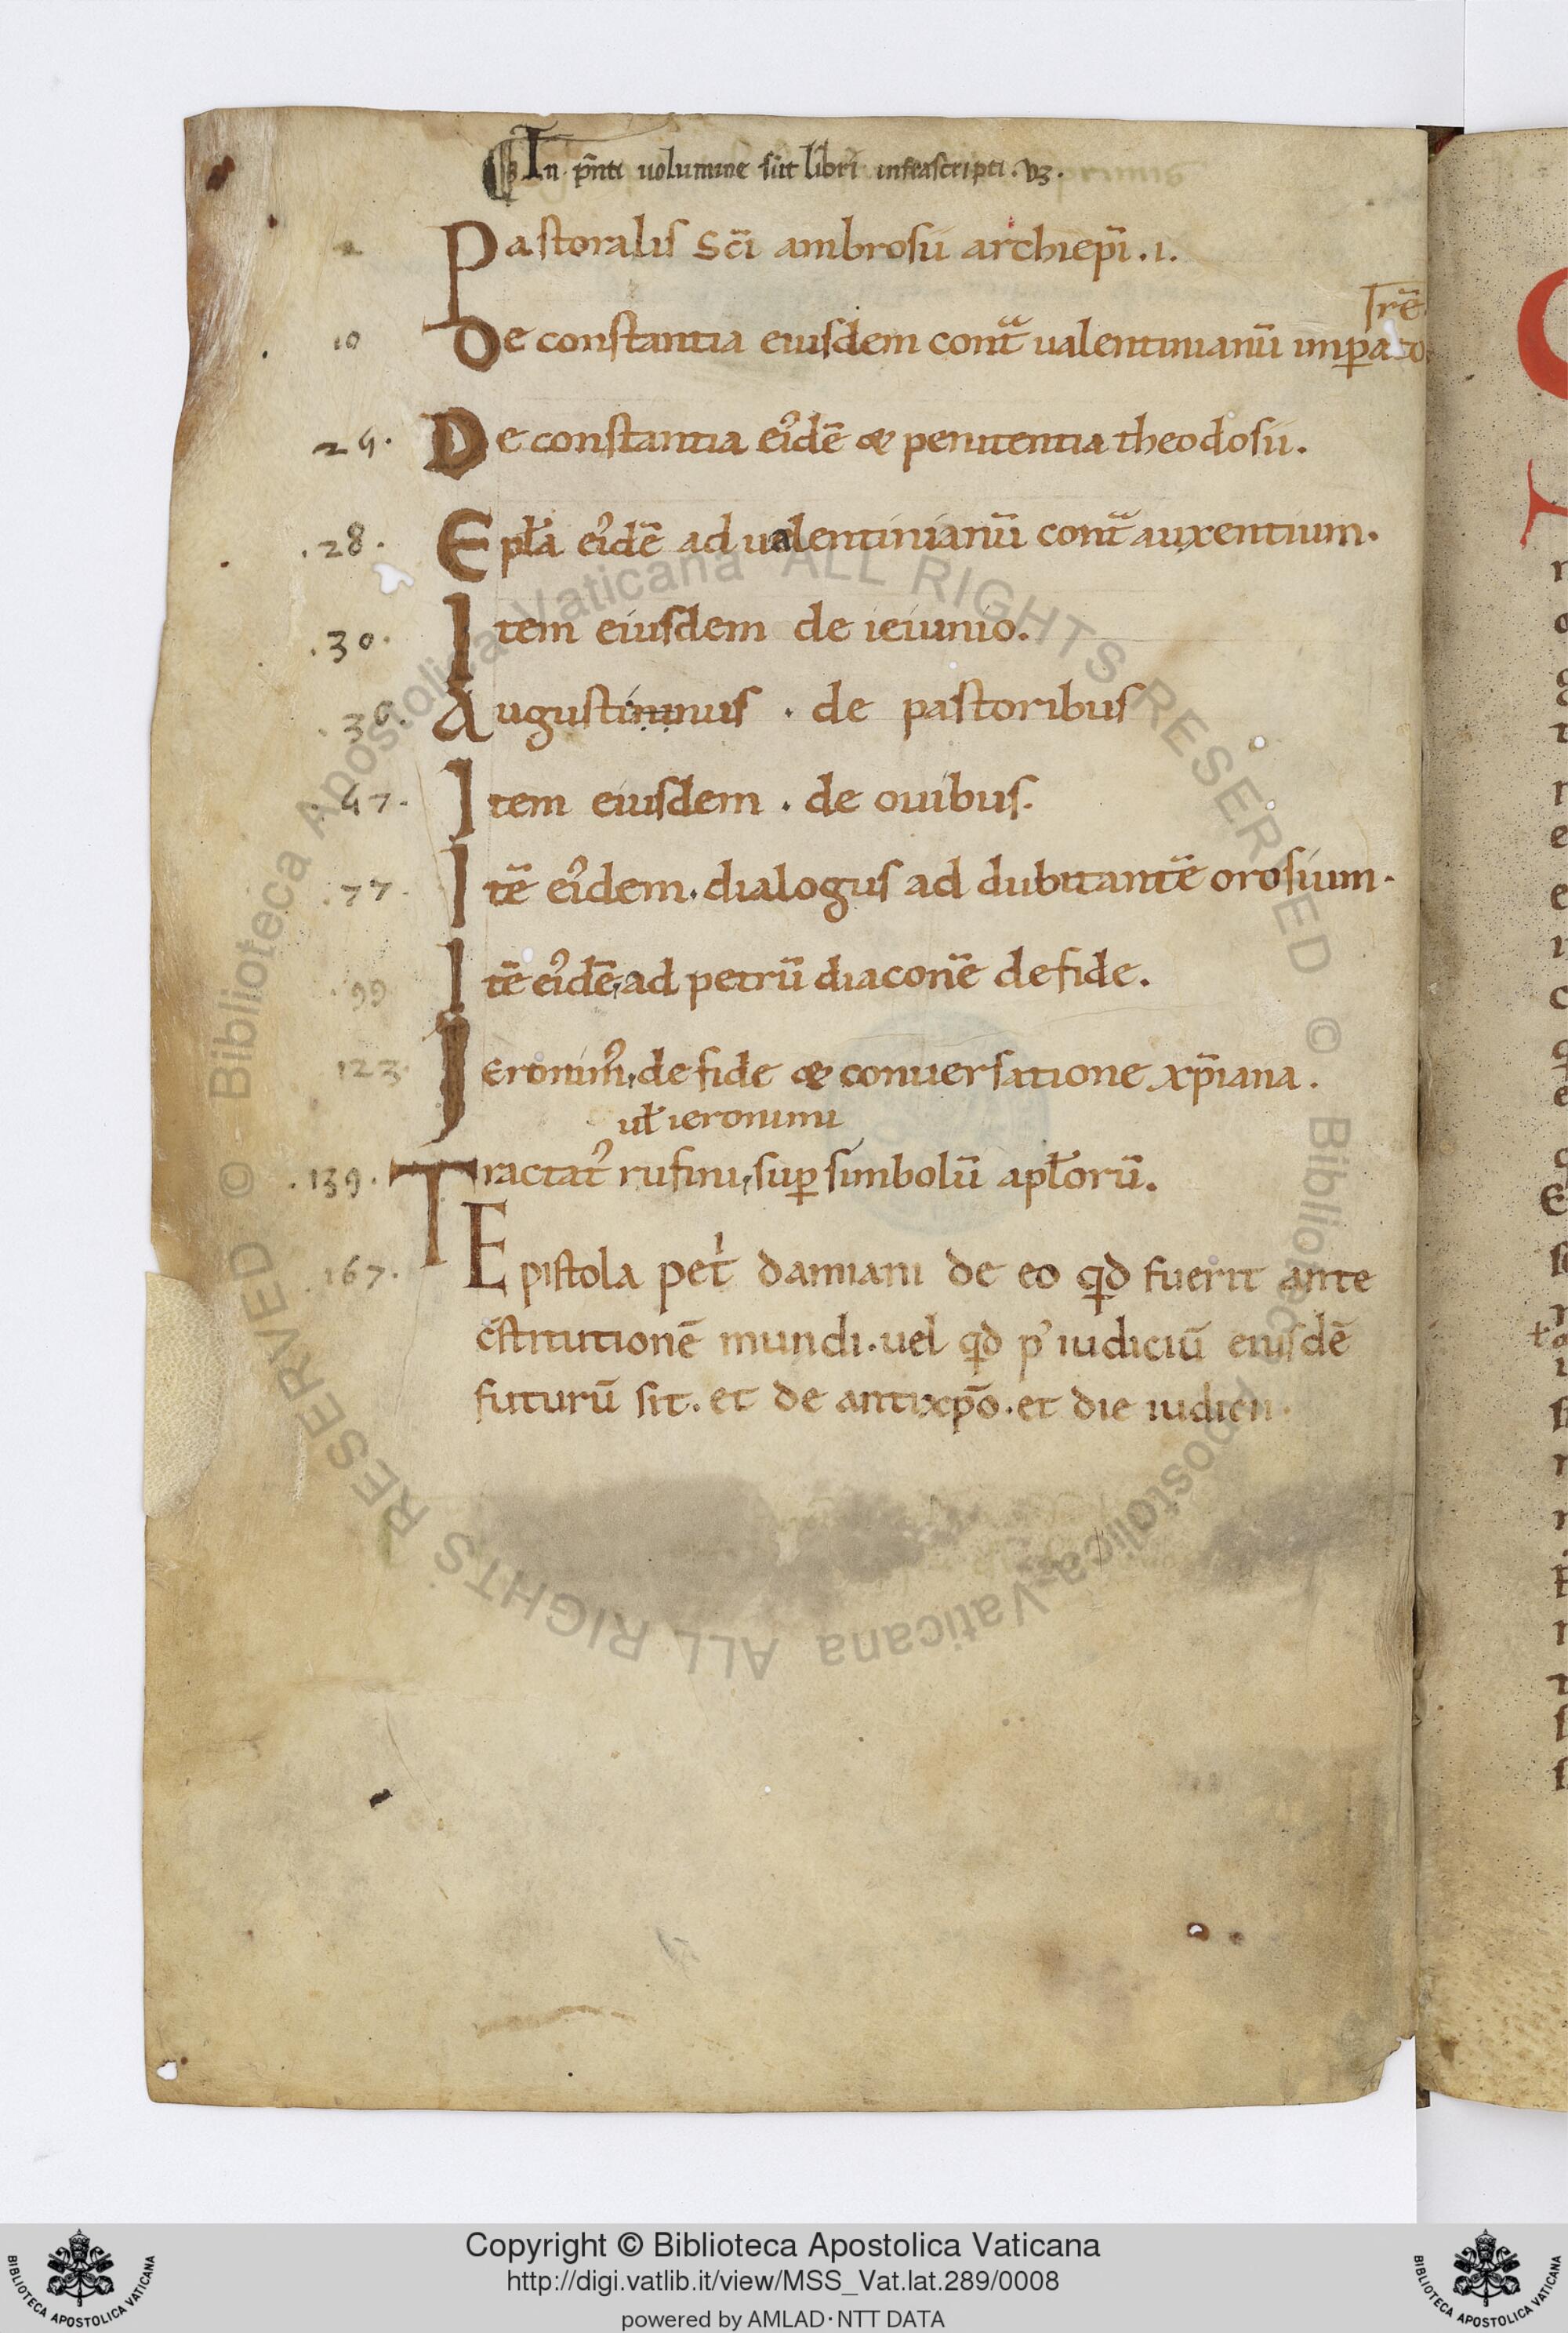 In pñti uolumine sūt libri infrascripti. vꝫ.
2 Pastoralis Sc̄i ambrosii archiep̄i. i.
Trē
10 De constantia eiusdem cont̄ ualentinianū imꝑato
24. De constantia ei᷒dē & penitentia theodosii.
.28. Epl̄a ei᷒dē ad ualentinianū cont̄ auxentium.
.30. Item eiusdem de ieiunio.
.36. Augustininus . de pastoribus
47. Item eiusdem . de ouibus.
.77. Itē ei᷒dem. dialogus ad dubitantē orosium.
.99 Itē ei᷒dē, ad petrū diaconē de fide.
123. Ieronim᷒, de fide & conuersatione xp̄iana.
ul̄ ieronimi
.139. Tractat᷒ rufini, suꝑ simbolū apl̄orū.
167. Epistola pet̍ damiani de eo qd̄ fuerit ante
c̄stitutionē mundi. uel qd̄ p᷒ iudiciū eiusdē
futurū sit. et de antixp̄o. et die iudicii.
© Biblioteca Apostolica Vaticana ALL RIGHTS RESERVED © Biblioteca Apostolica Vaticana ALL RIGHTS RESERVED
Copyright © Biblioteca Apostolica Vaticana
http://digi.vatlib.it/view/MSS_Vat.lat.289/0008
powered by AMLAD·NTT DATA
BIBLIOTECA APOSTOLICA VATICANA
BIBLIOTECA APOSTOLICA VATICANA